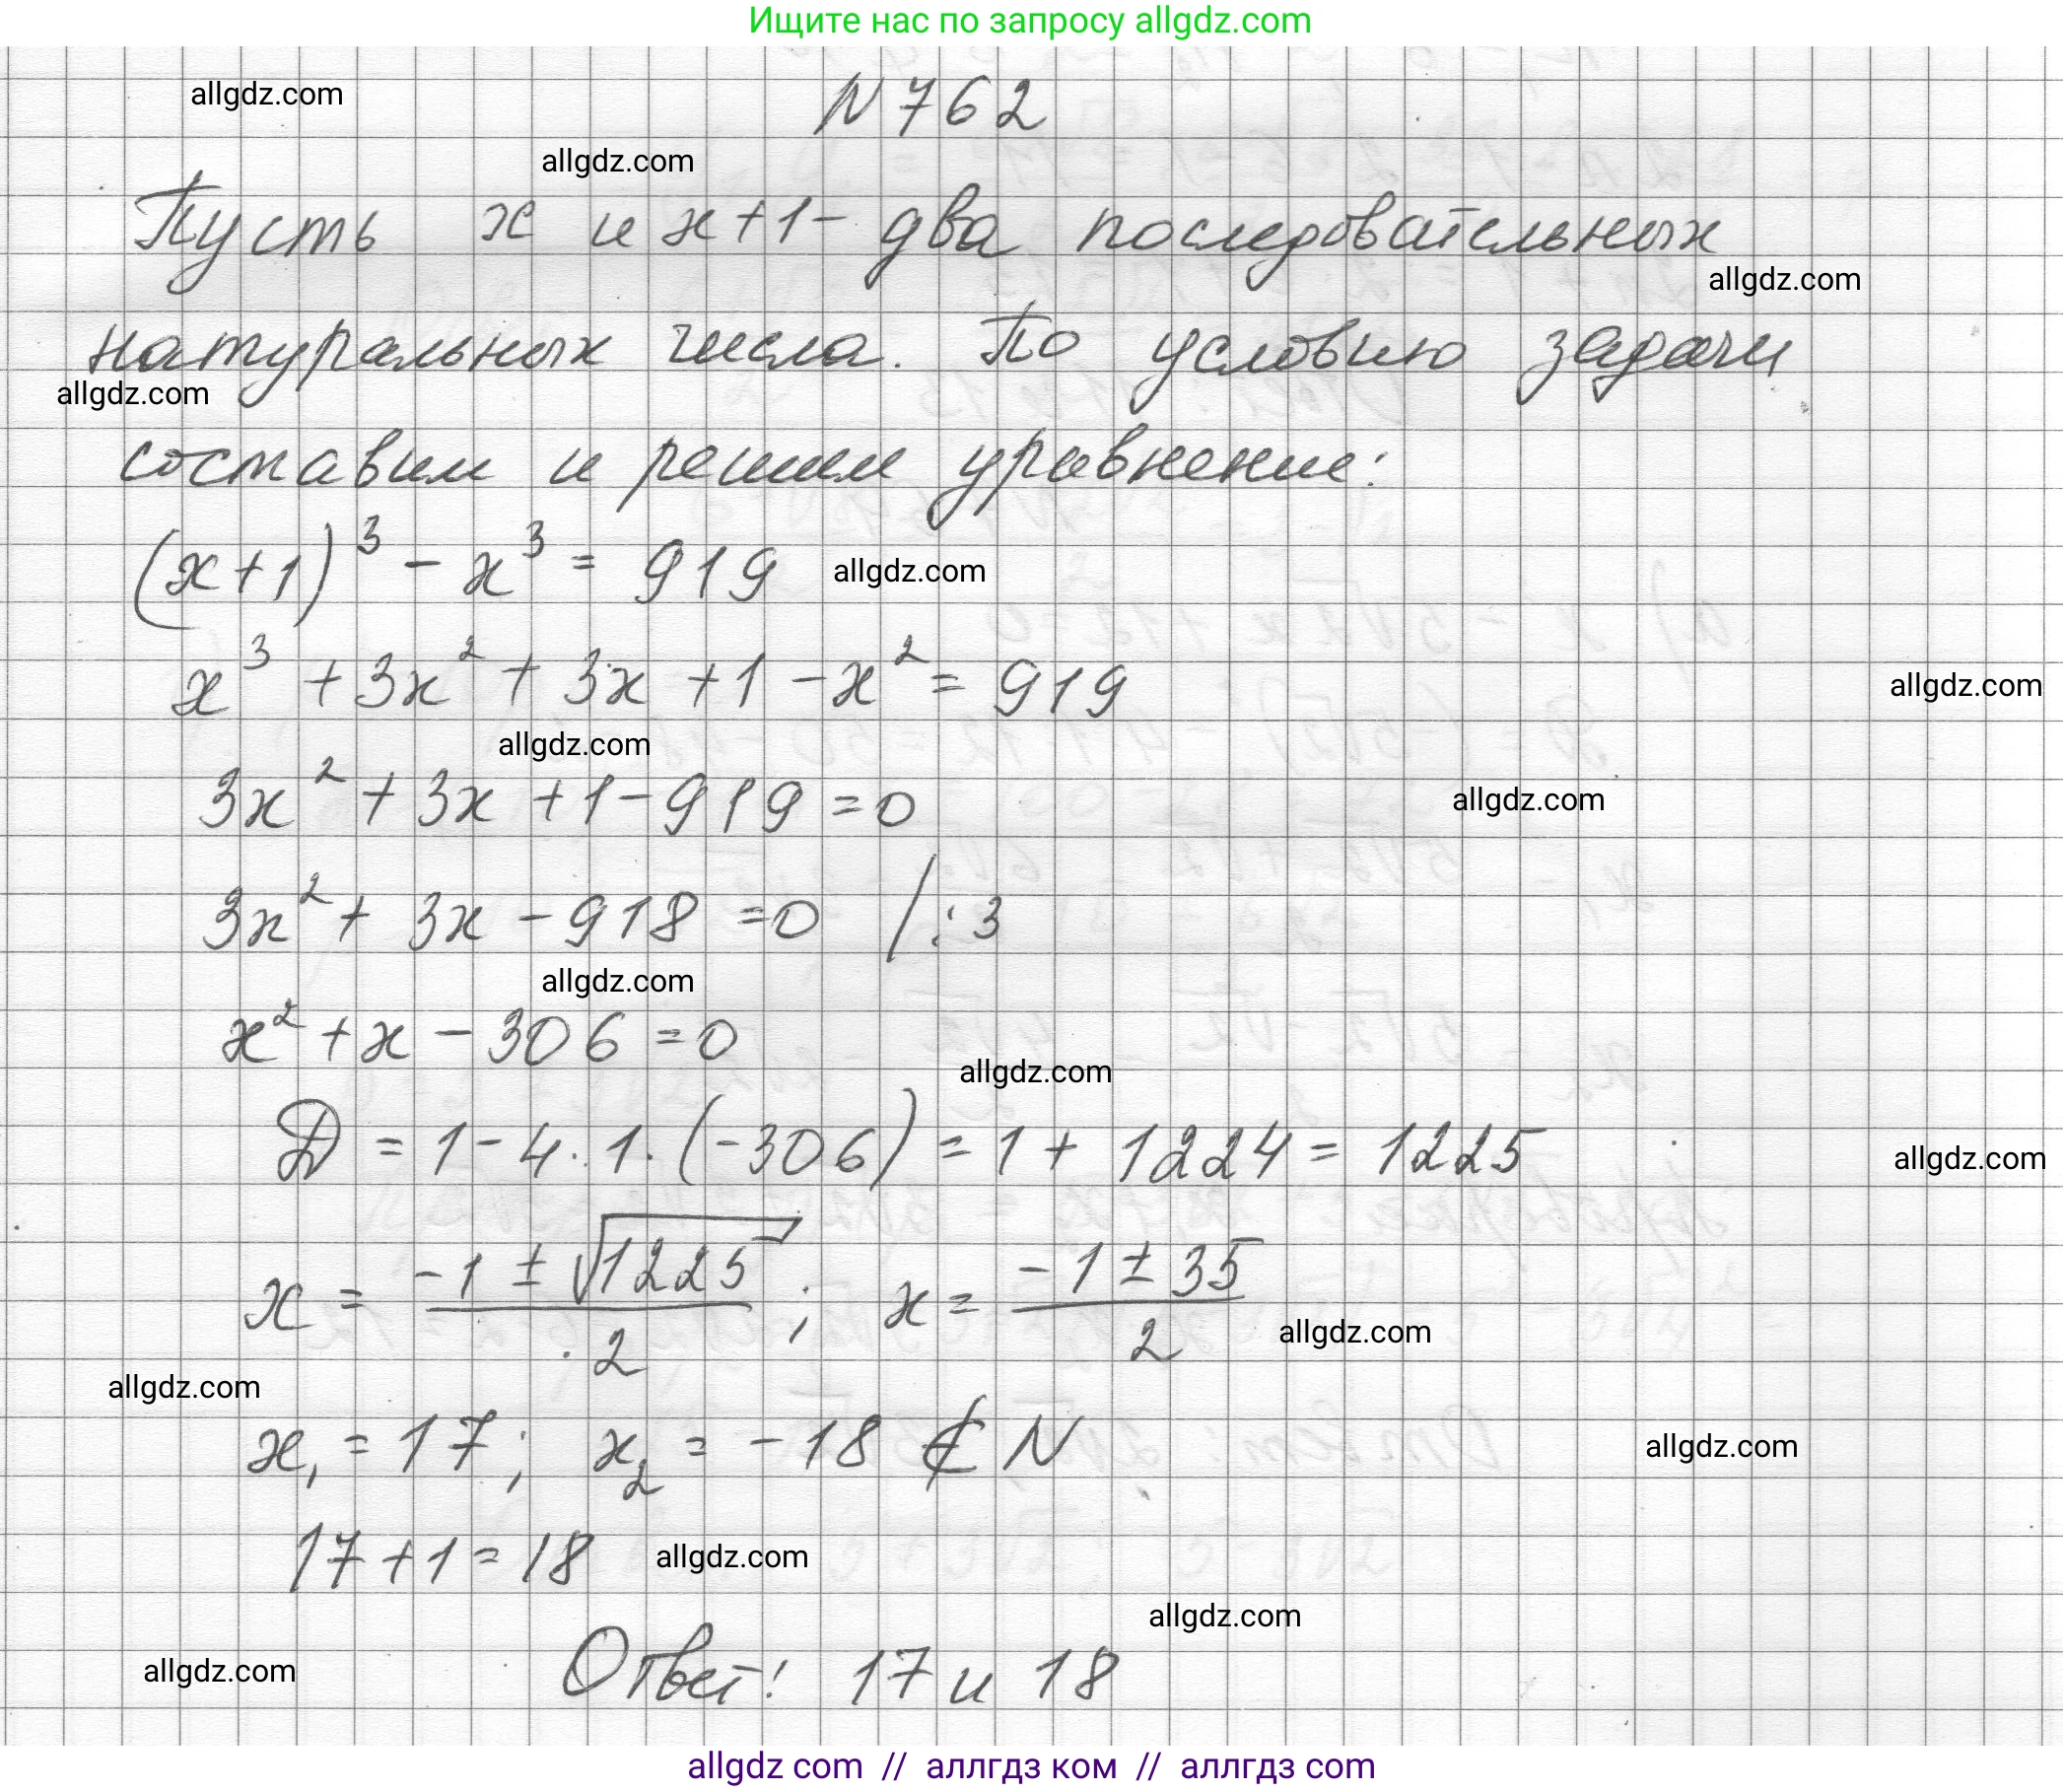 Ищите нас по запросу allgdz.com
allgdz.com
N 762
allgdz.com
Пусть x и x+1 - два последовательных
allgdz.com
натуральных числа. По условию задачи
allgdz.com
составим и решим уравнение:
(x+1)³ - x³ = 919 allgdz.com
x³ + 3x² + 3x + 1 - x² = 919
allgdz.com
allgdz.com
3x² + 3x + 1 - 919 = 0
allgdz.com
3x² + 3x - 918 = 0 /:3
allgdz.com
x² + x - 306 = 0
allgdz.com
D = 1 - 4 · 1 · (-306) = 1 + 1224 = 1225
allgdz.com
x = (-1 ± √1225)/2 ; x = (-1 ± 35)/2
allgdz.com
allgdz.com
x₁ = 17; x₂ = -18 ∉ N
allgdz.com
17 + 1 = 18 allgdz.com
allgdz.com
Ответ: 17 и 18
allgdz.com
allgdz com // аллгдз ком // аллгдз com